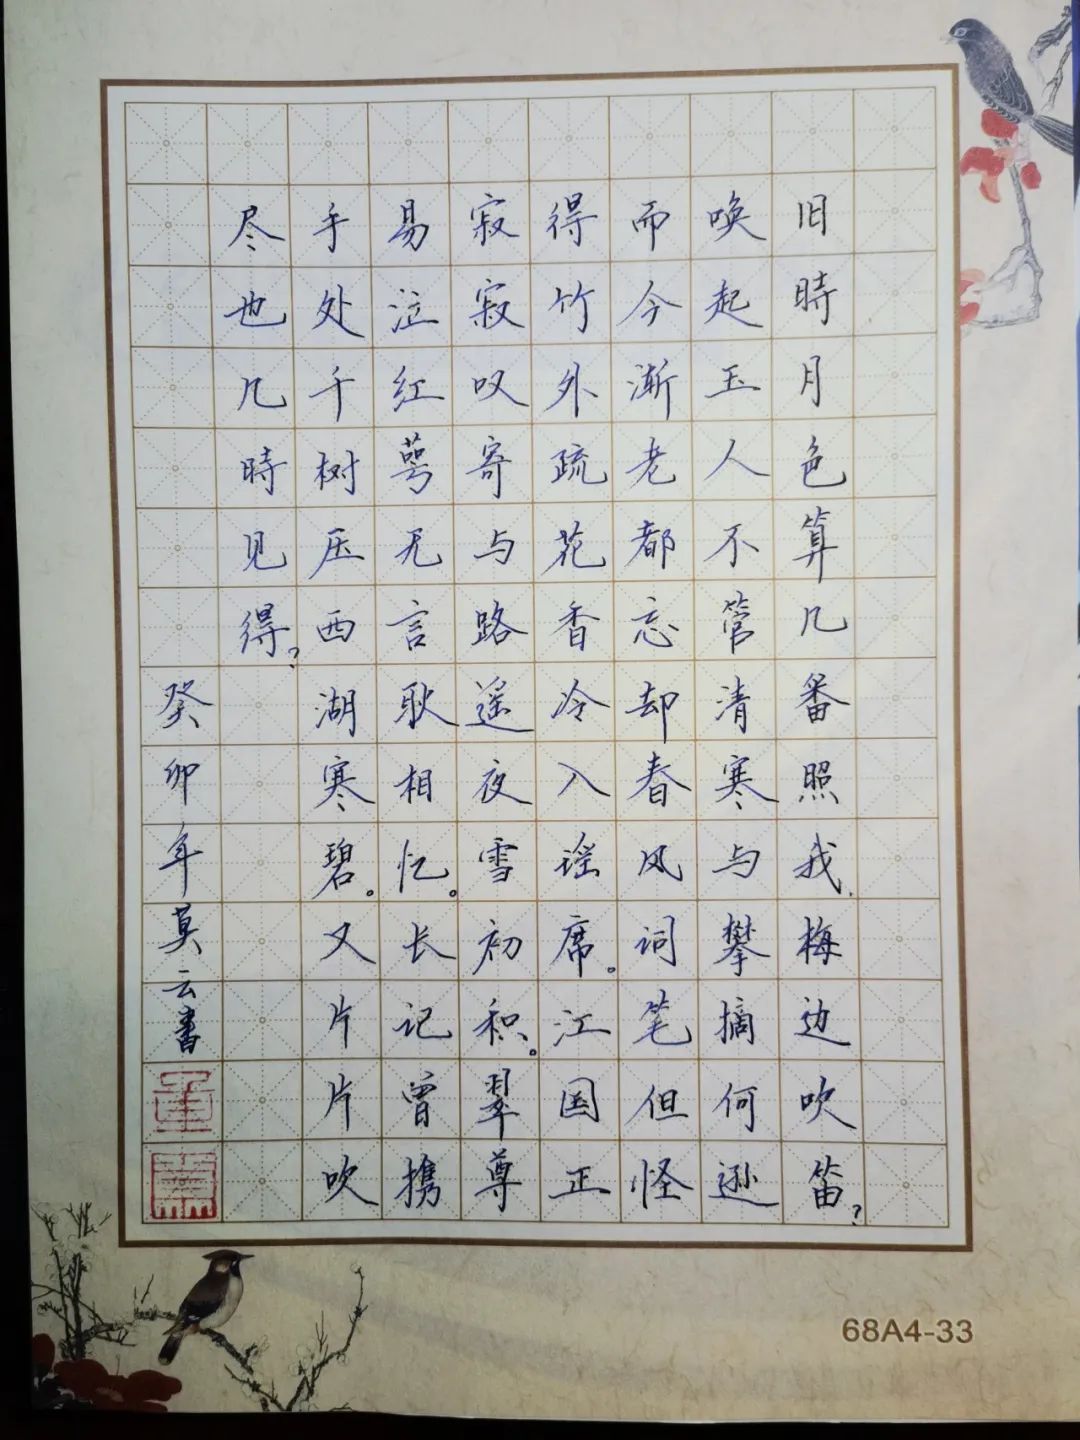 旧時月色算几番照我.梅边吹笛?
唤起玉人不管清寒与攀摘何逊
而今渐老都忘却春风词笔但怪
得竹外疏花香冷入瑶席。江国正
寂寂叹寄与路遥夜雪初积。翠尊
易泣红萼无言耿相忆。长记曾携
手处千树压西湖寒碧。又片片吹
尽也几時见得?
癸卯年莫云書
68A4-33